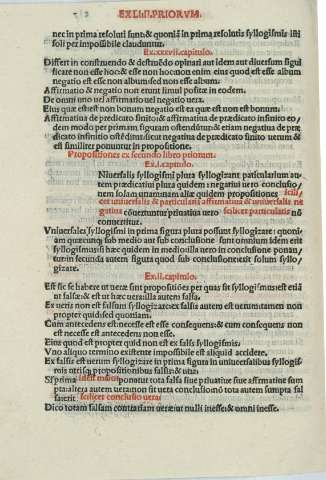 EX LI.II.PRIORVM.
nec in prima resoluti sunt: & quoniā in prima resolutis syllogismis isti
soli per impossibile clauduntur.
Ex.xxxvii.capitulo.
Differt in construendo & destruēdo opinari aut idem aut diuersum significare
ficare non esse hoc & esse non hoc: non enim eius quod est esse album
negatio est esse non album sed non esse album.
Affirmatio & negatio non erunt simul positæ in eodem.
De omni uno uel affirmatio uel negatio uera.
Eius quæ est est non bonum negatio est ea quæ est non est bonum.
Affirmatiua de prædicato finito: & affirmatiua de prædicato infinito eo/
dem modo per primam figuram ostenduntur: & etiam negatiua de præ/
dicato infinito ostēditur sicut negatiua de prædicato finito uerum &
est similiter ponuntur in propositione.
Propositiones ex secundo libro priorum.
Ex.i.capitulo.
Niuersalis syllogismi plura syllogizant particularium au/
tem prædicatiui plura quidem: negatiui uero conclusio/
nem solam unam: nam aliæ quidem propositiones scili/
cet uniuersalis & particularis affirmatiua & uniuersalis ne
gatiua cōuertuntur priuatiua uero scilicet particularis nō
conuertitur.
Vniuersales syllogismi in prima figura plura possunt syllogizare: quo/
niam quæcunq; sub medio aut sub conclusione sunt omnium idem erit
syllogismus: si hæc quidem in medio uero in conclusione ponan/
tur: in secunda autem figura quod sub conclusione est solum syllo/
gizare.
Ex.ii.capitulo.
Est sic se habere ut ueræ sint propositiones per quas fit syllogismus: est etiā
ut falsæ: & est ut hæc uera illa autem falsa.
Ex ueris non est falsum syllogizare: ex falsis autem est uerum: tamen non
propter quid sed quoniam.
Cum antecedens est necesse est esse consequens: & cum consequens non
est necesse est antecedens non esse.
Eius quod est propter quid non est ex falsis syllogismus.
Vno aliquo termino existente impossibile est aliquid accidere.
Ex falsis est uerum syllogizare in prima figura in uniuersalibus syllogis/
mis utrisq; propositionibus falsis: & una.
Si prima idest maior ponatur tota falsa siue priuatiue siue affirmatiue sum
pta altera autem uera non sit uera conclusio nō tota autem sumpta fal
sa erit scilicet conclusio uera.
Dico totam falsam contrariam ueræ: ut nulli inesse: & omni inesse.